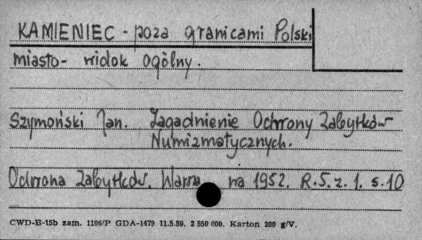 KAMIENIEC - poza granicami Polski
miasto - widok ogólny.
Szymoński Jan. Zagadnienie Ochrony Zabytków
Numizmatycznych.
Ochrona Zabytków. Warsza na 1952. R.5. z. 1. s. 10
CWD-B-15b zam. 1106/P GDA-1479 11.5.59. 2 550 000. Karton 200 g/V.